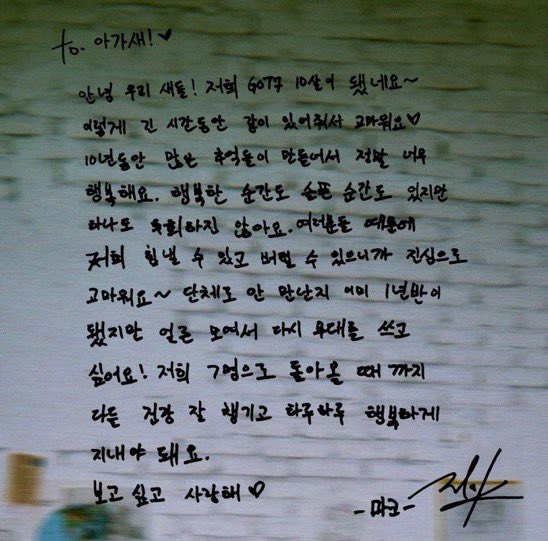 to. 아가새!♡
안녕 우리 새들! 저희 GOT7 10살이 됐네요~
이렇게 긴 시간동안 같이 있어줘서 고마워요♡
10년동안 많은 추억들이 만들어서 정말 너무
행복해요. 행복한 순간도 슬픈 순간도 있지만
하나도 후회하진 않아요. 여러분들 때문에
저희 힘낼 수 있고 버틸 수 있으니까 진심으로
고마워요~ 단체도 안 만난지 이미 1년반이
됐지만 얼른 모여서 다시 무대를 쓰고
싶어요! 저희 7명으로 돌아올 때 까지
다들 건강 잘 챙기고 하루하루 행복하게
지내야 돼요.
보고 싶고 사랑해♡
-마크-